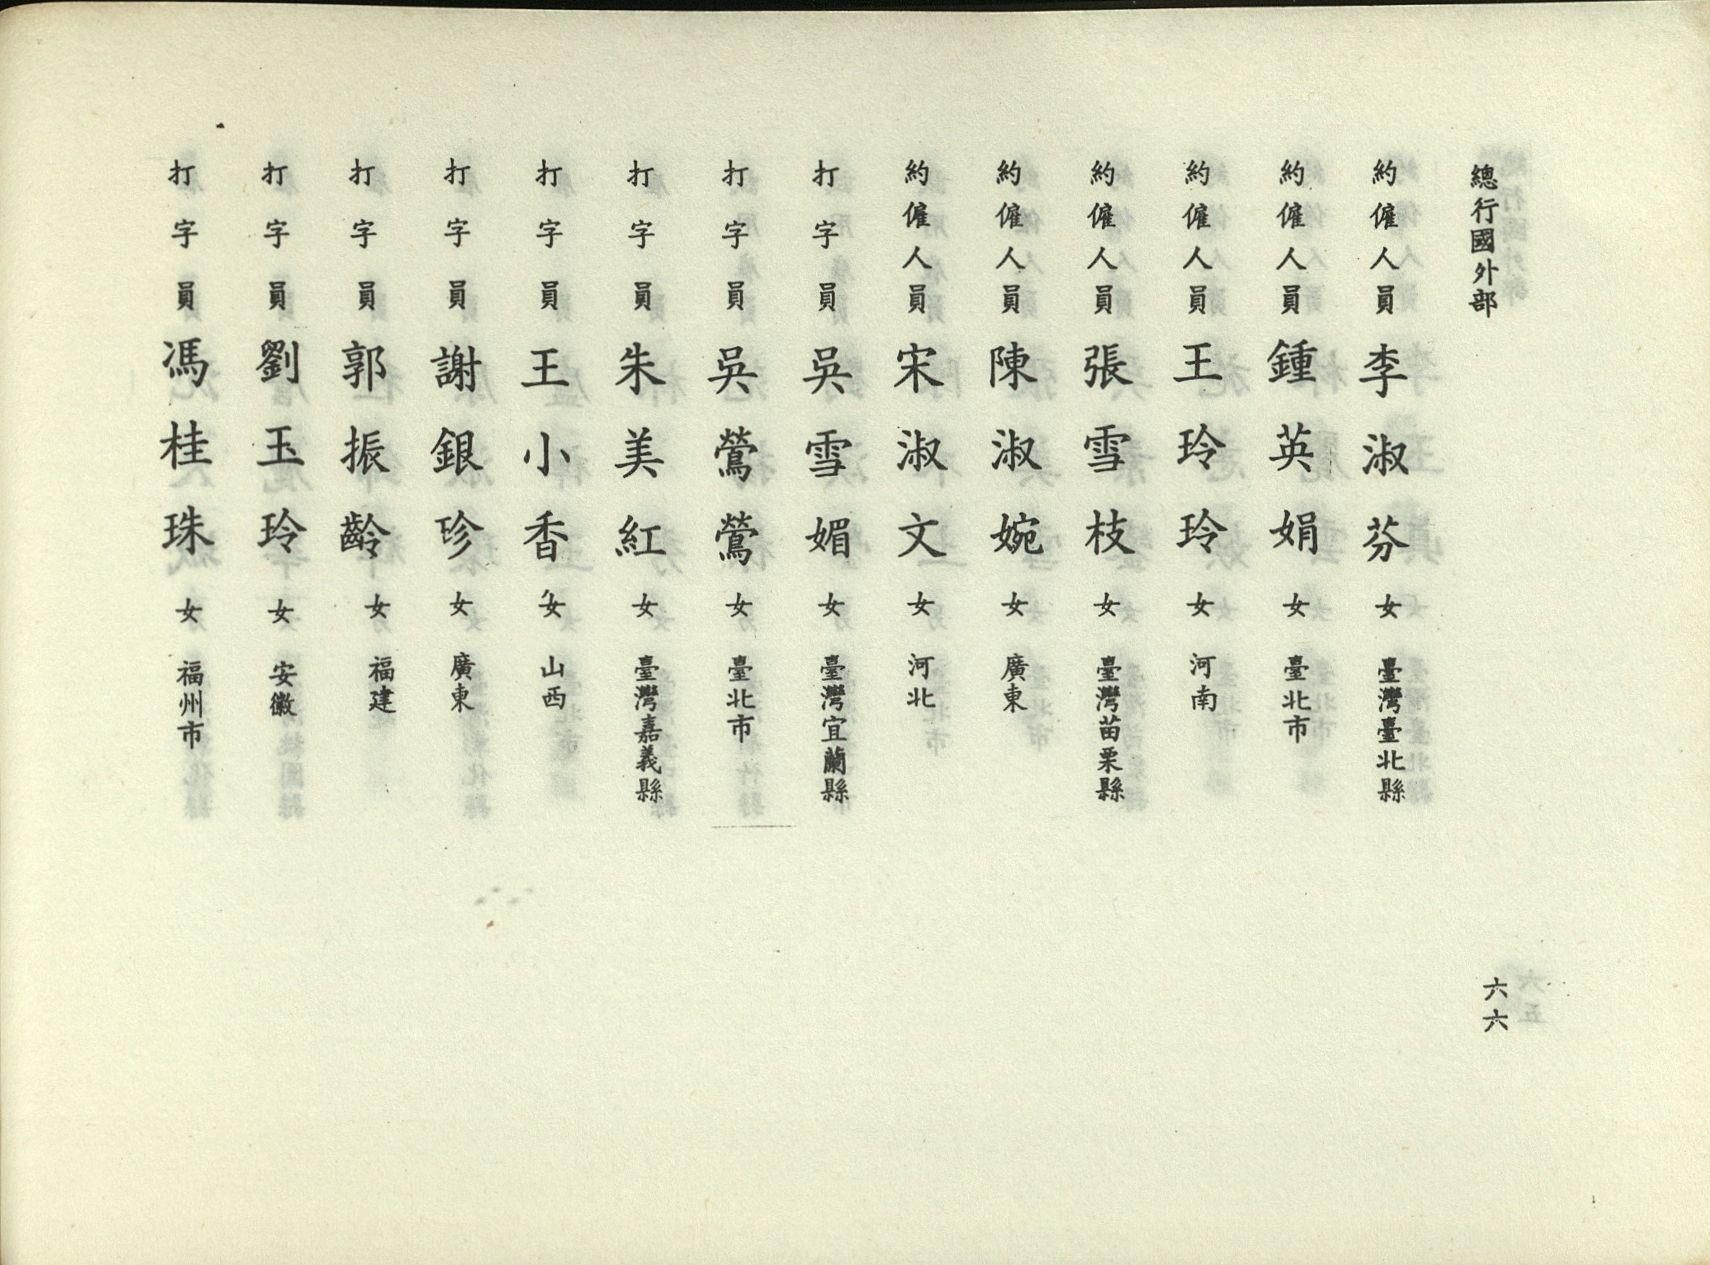 總行國外部
六六
約僱人員李淑芬女臺灣臺北縣
約僱人員鍾英娟女臺北市
約僱人員王玲玲女河南
約僱人員張雪枝女臺灣苗栗縣
約僱人員陳淑婉女廣東
約僱人員宋淑文女河北
打字員吳雪媚女臺灣宜蘭縣
打字員吳鶯鶯女臺北市
打字員朱美紅女臺灣嘉義縣
打字員王小香女山西
打字員謝銀珍女廣東
打字員郭振齡女福建
打字員劉玉玲女安徽
打字員馮桂珠女福州市